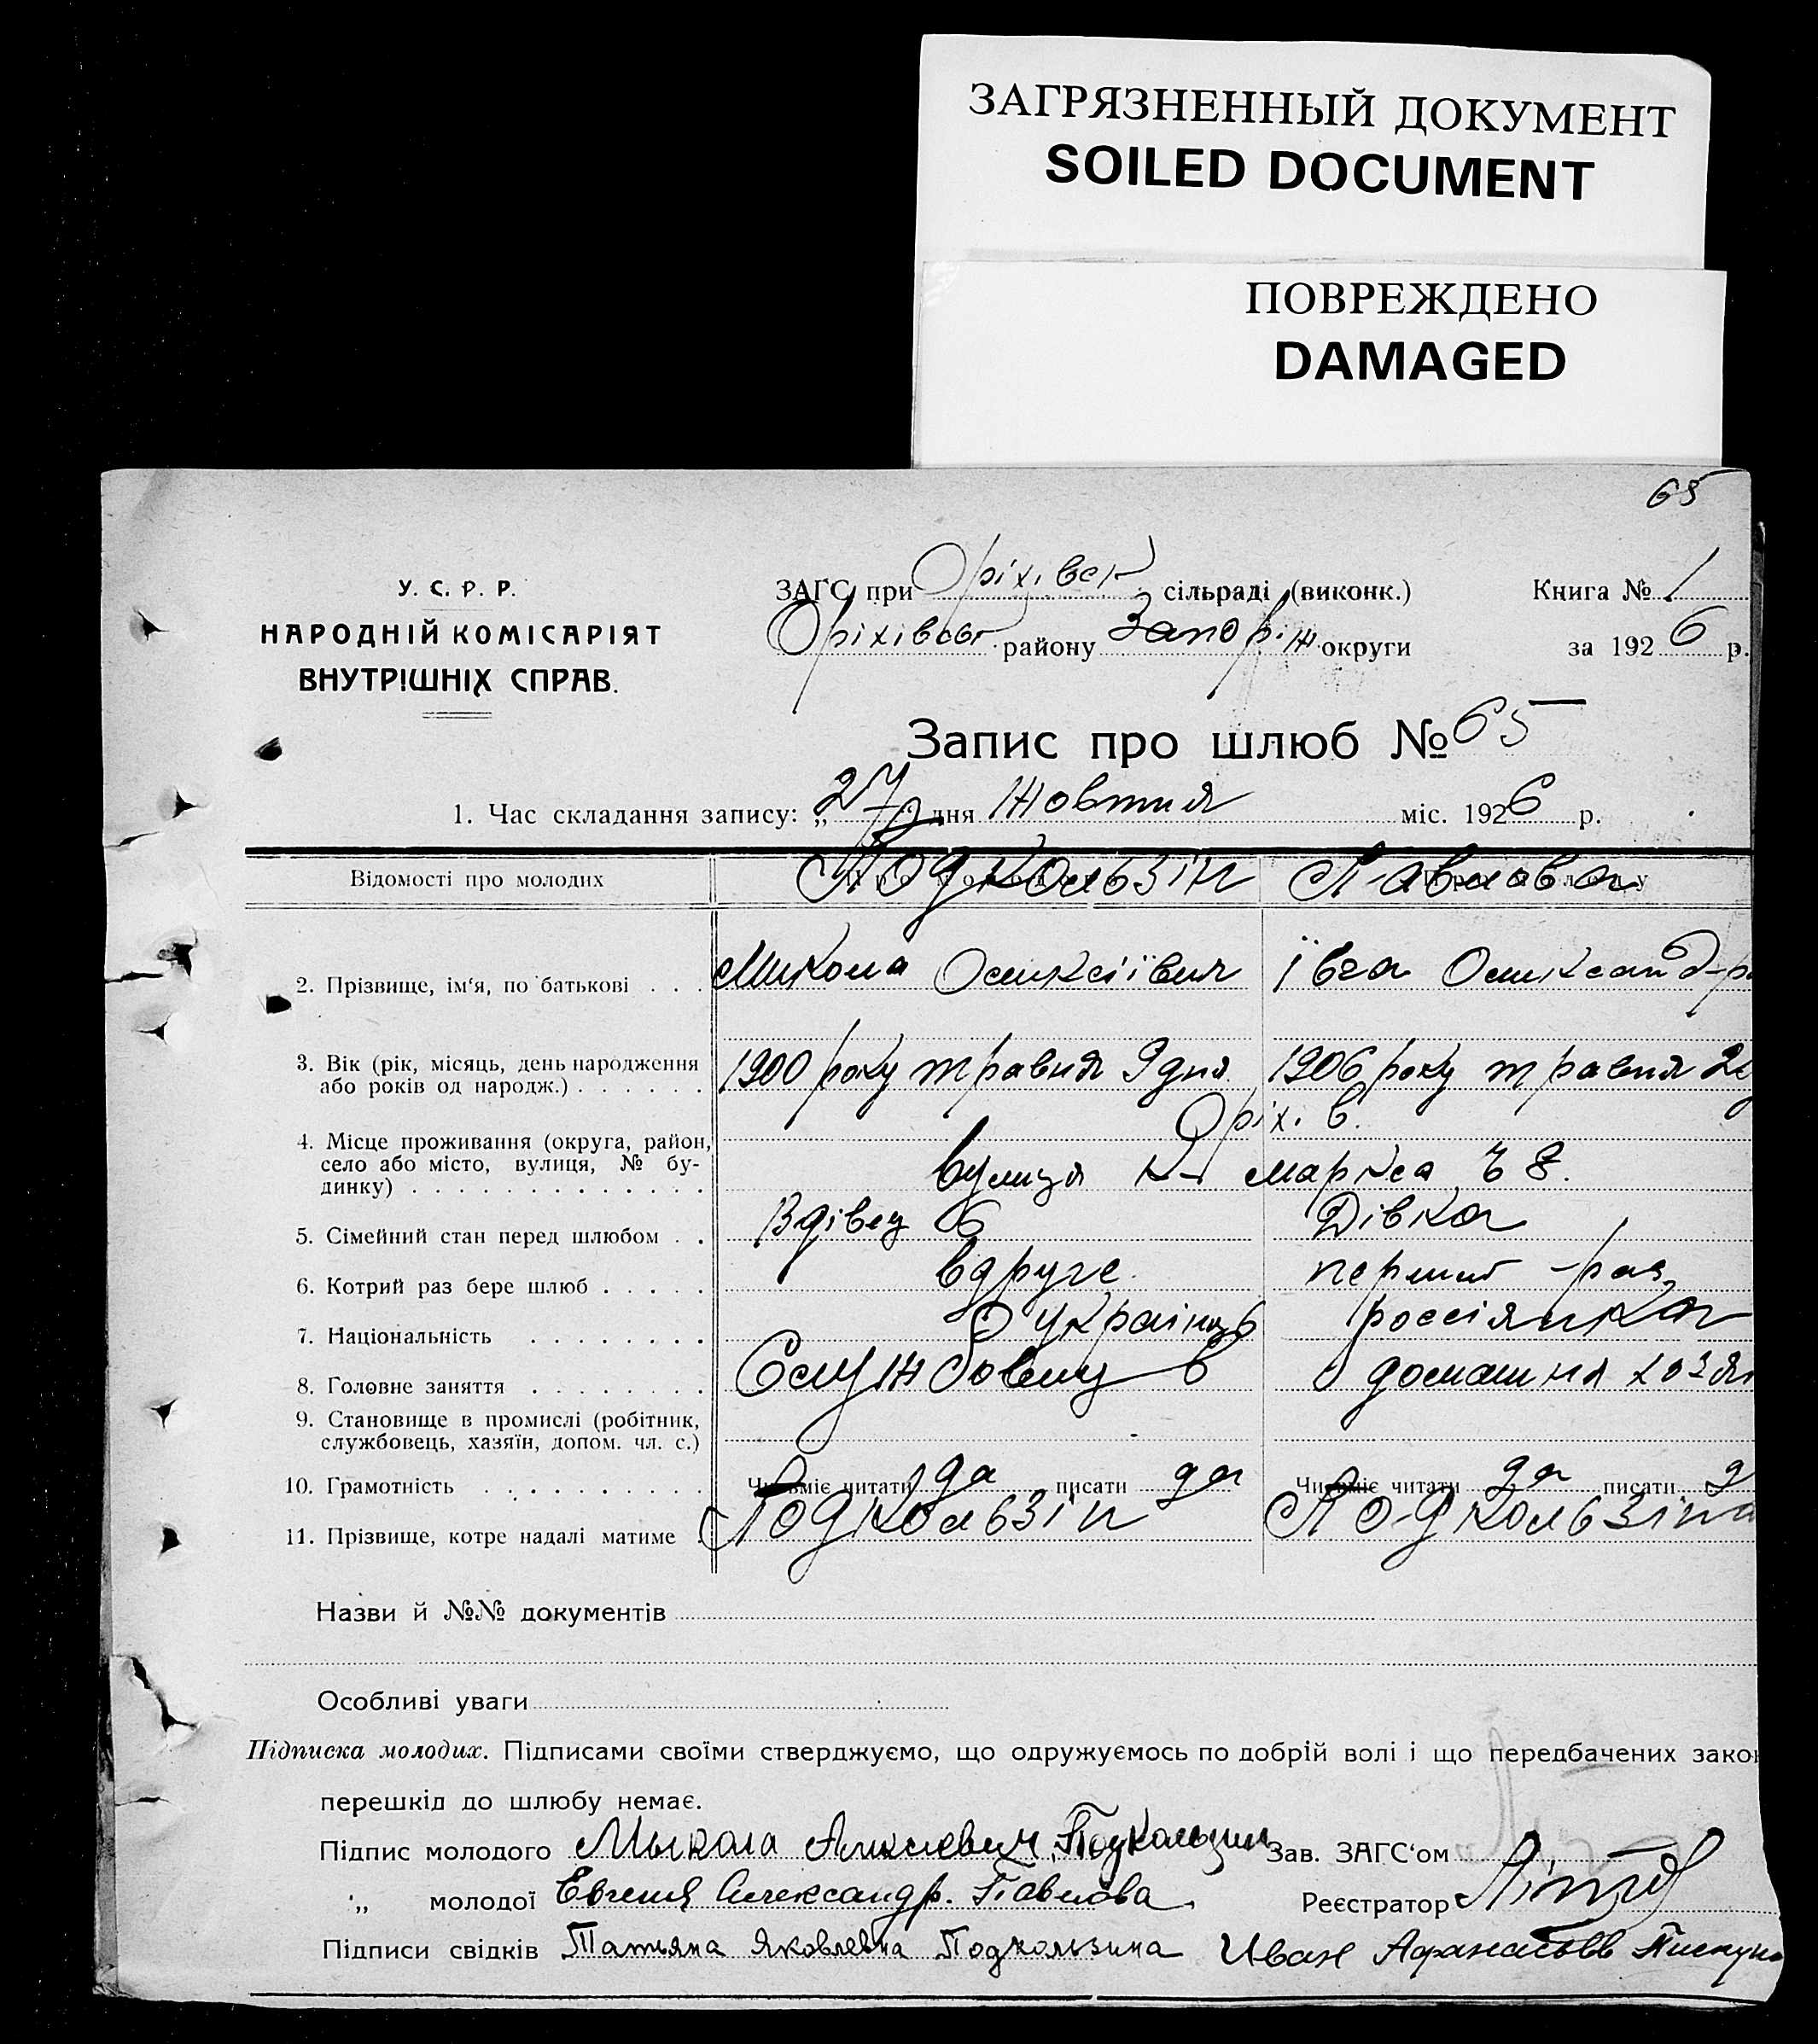 ЗАГРЯЗНЕННЫЙ ДОКУМЕНТ
SOILED DOCUMENT
ПОВРЕЖДЕНО
DAMAGED
65
У. С. Р. Р.
НАРОДНІЙ КОМІСАРІЯТ
ВНУТРІШНІХ СПРАВ.
ЗАГС при Оріхівск сільраді (виконк.) Книга № 1
Оріхівськ району Запоріж округи за 1926 р.
Запис про шлюб № 65
1. Час складання запису: „27" дня Жовтня міс. 1926 р.
Відомості про молодих Подкользін Павлова
2. Прізвище, ім'я, по батькові . . . Микола Олексіївич Івга Олександр
3. Вік (рік, місяць, день народження 1900 року травня 9 дня 1906 року травня
або років од народж.) . . . . . .
4. Місце проживання (округа, район, Оріхів.
село або місто, вулиця, № бу- вулиця К. Маркса 8.
динку) . . . . . . . . . . . . .
5. Сімейний стан перед шлюбом . . Вдівец Дівка
6. Котрий раз бере шлюб . . . . . вдруге перший раз
7. Національність . . . . . . . українць россіянка
8. Головне заняття . . . . . . . Службовець домашня хозяй
9. Становище в промислі (робітник,
службовець, хазяїн, допом. чл. с.)
10. Грамотність . . . . . . . . . . Чи вміє читати да писати да Чи вміє читати да писати д
11. Прізвище, котре надалі матиме . Подкользін Подкользіна
Назви й №№ документів
Особливі уваги
Підписка молодих. Підписами своїми стверджуємо, що одружуємось по добрій волі і що передбачених закон
перешкід до шлюбу немає.
Підпис молодого Мыкола Алексіевич Подкользин Зав. ЗАГС'ом
„ молодої Евгения Александр. Павлова Реєстратор
Підписи свідків Татьяна Яковлевна Подкользина Иван Афанасьев